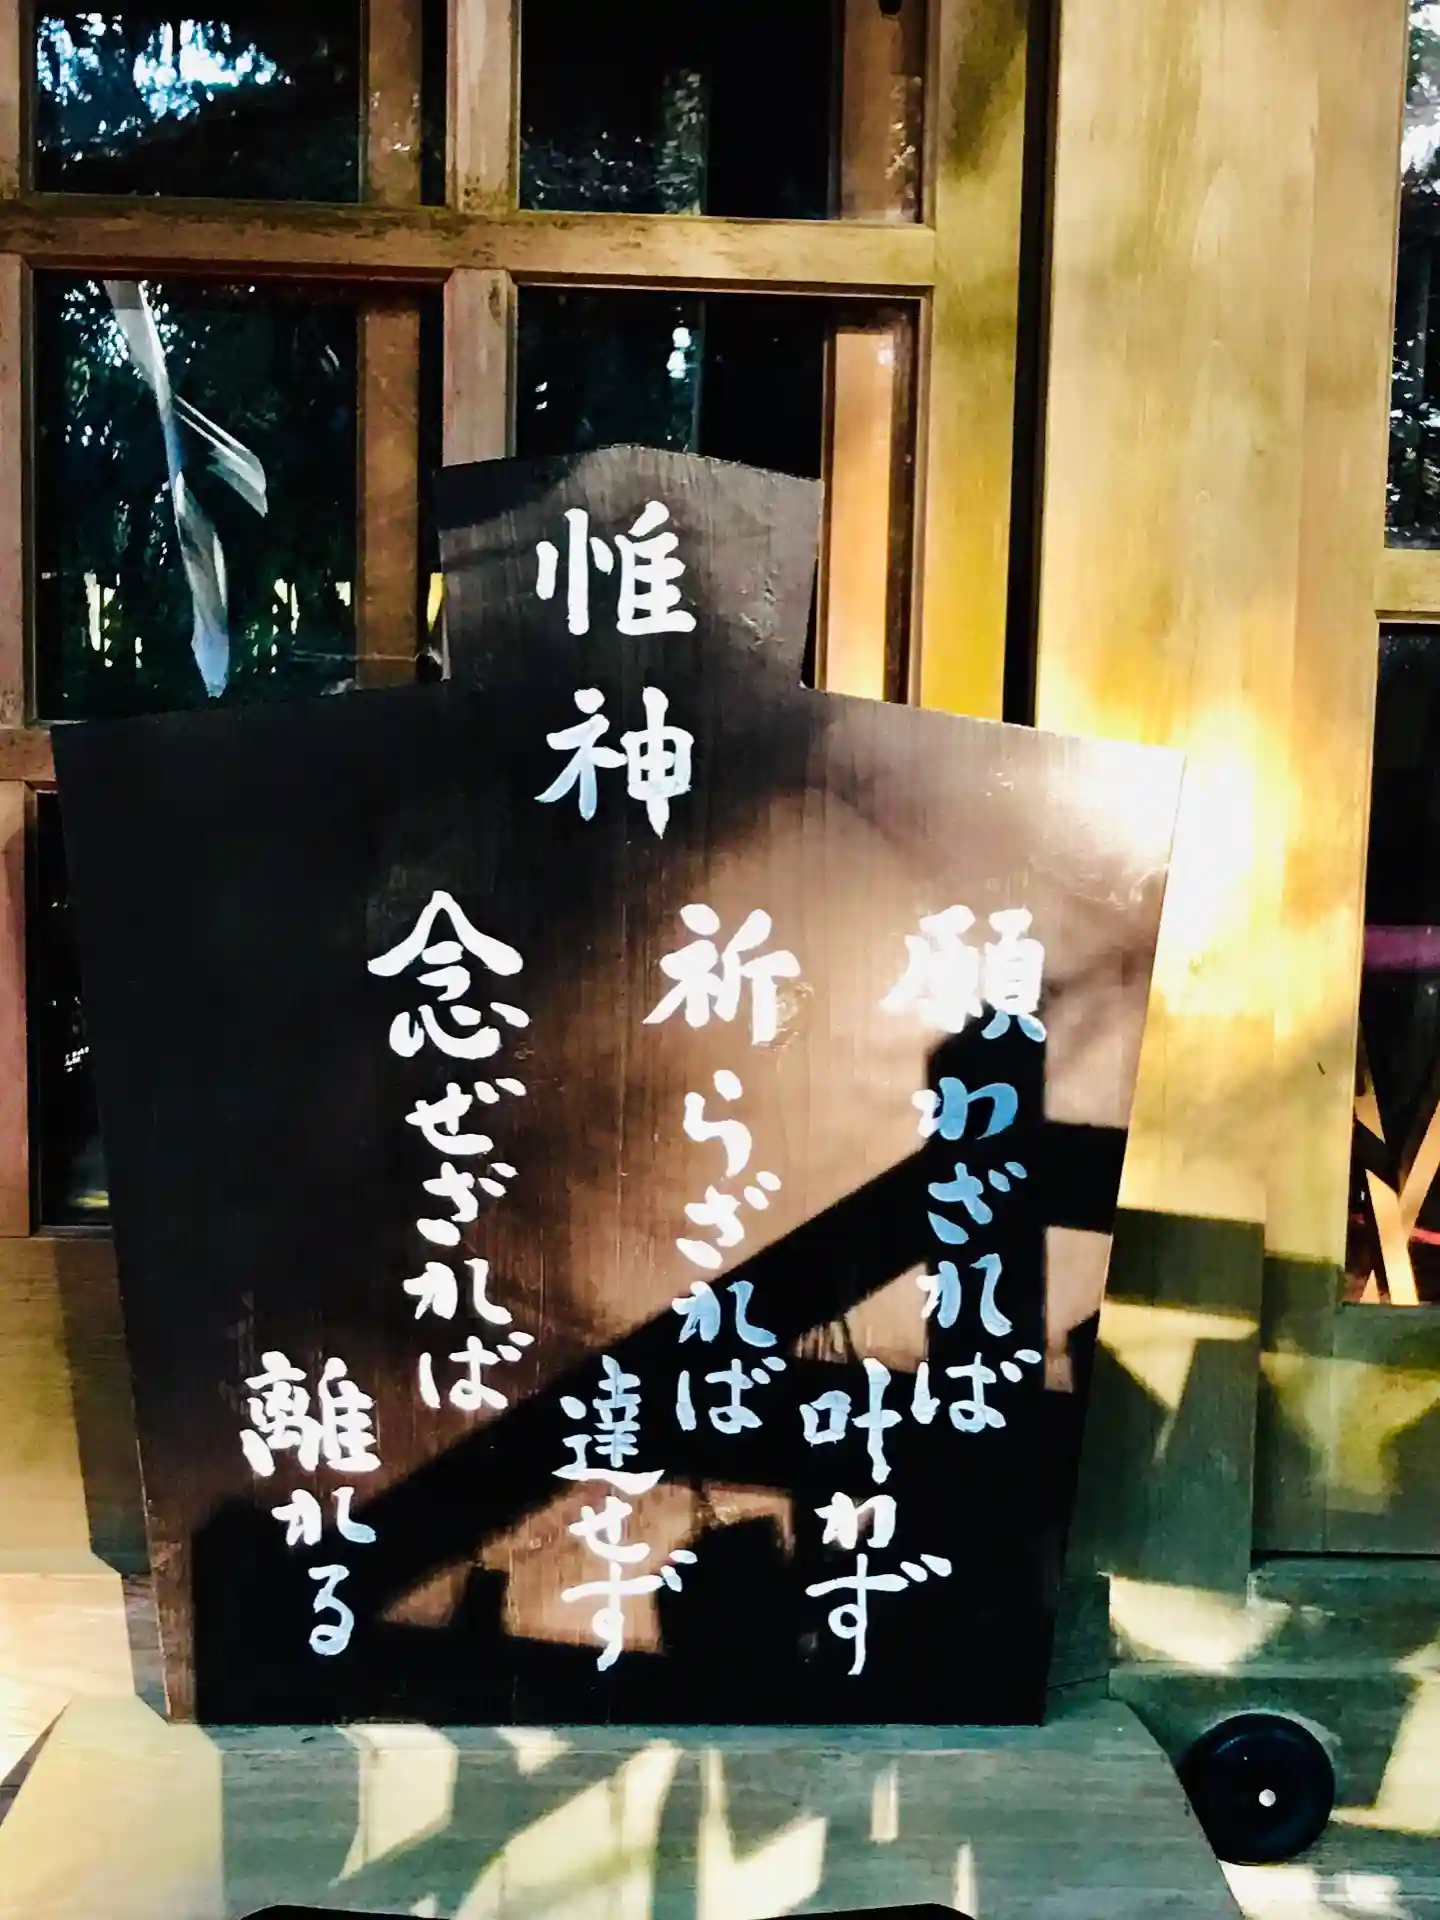 惟神
願わざれば
叶わず
祈らざれば
達せず
念ぜざれば
離れる